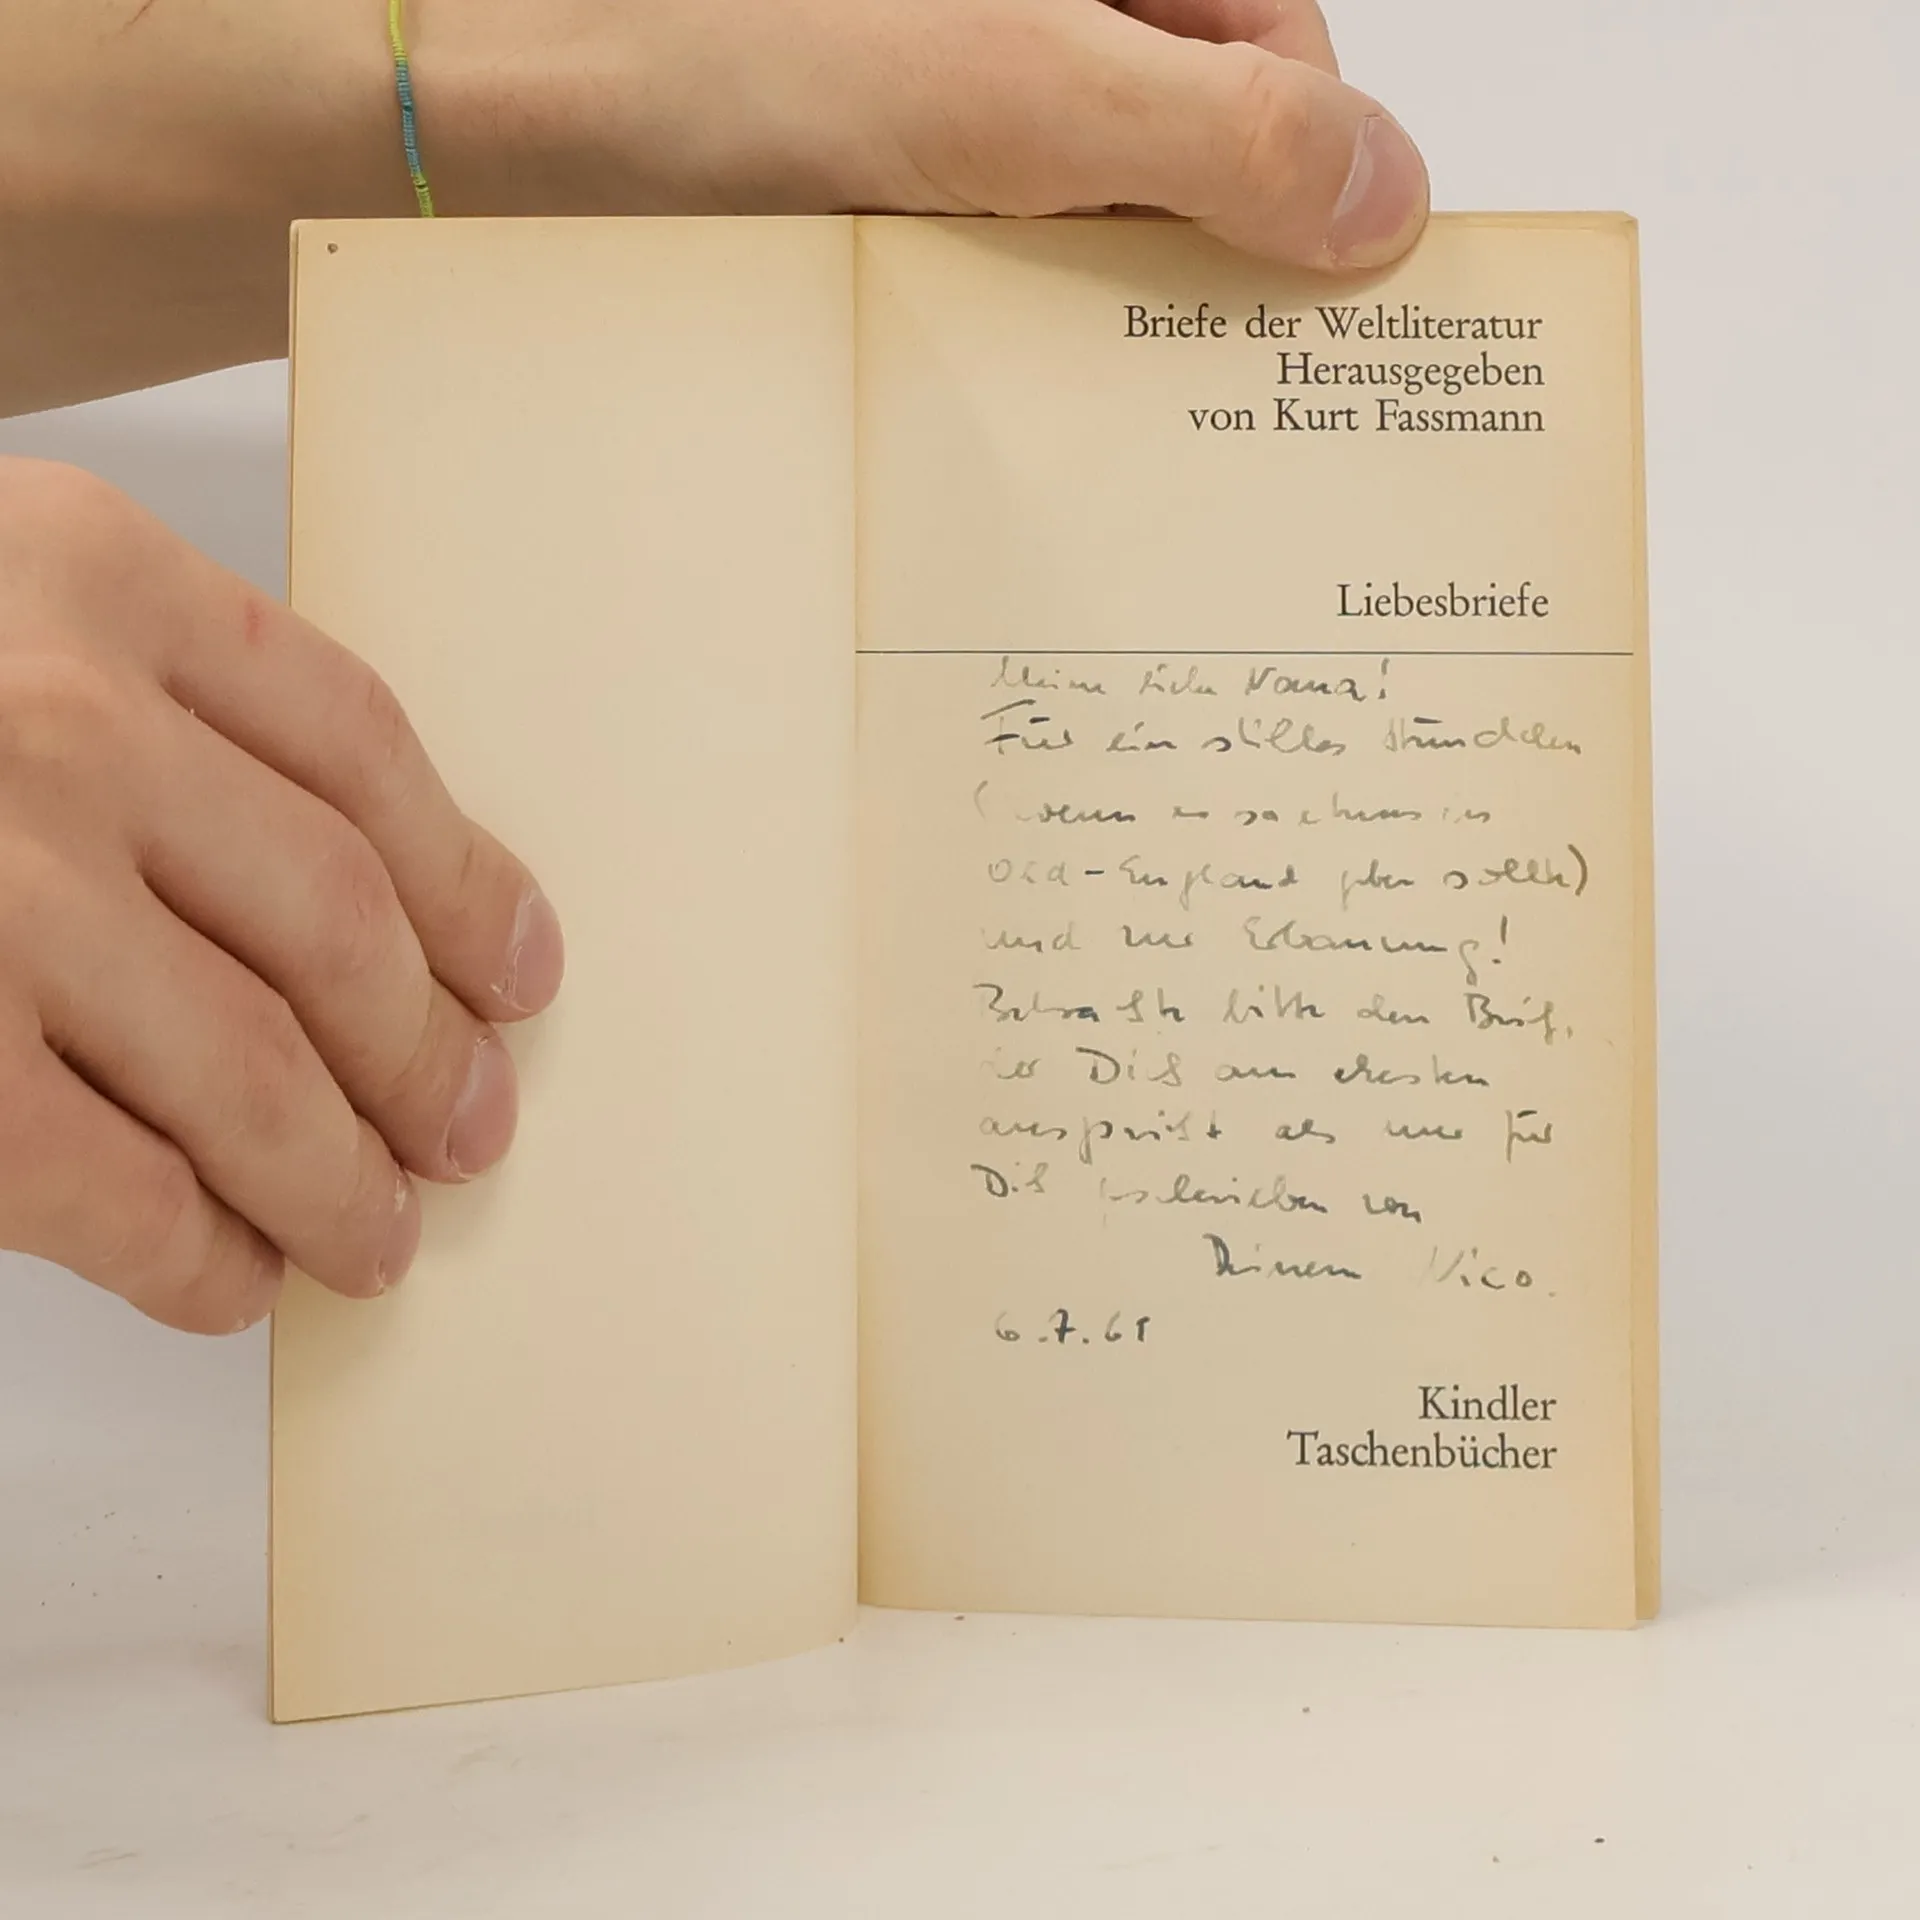 Briefe der Weltliteratur
Herausgegeben
von Kurt Fassmann
Liebesbriefe
Meine liebe Nana!
Für ein stilles Stündchen
(wenn es so etwas in
Old-England geben sollte)
und zur Erbauung!
Betrachte bitte den Brief,
der Dich am ehesten
anspricht als nur für
Dich geschrieben von
Deinem Nico.
6.7.61
Kindler
Taschenbücher